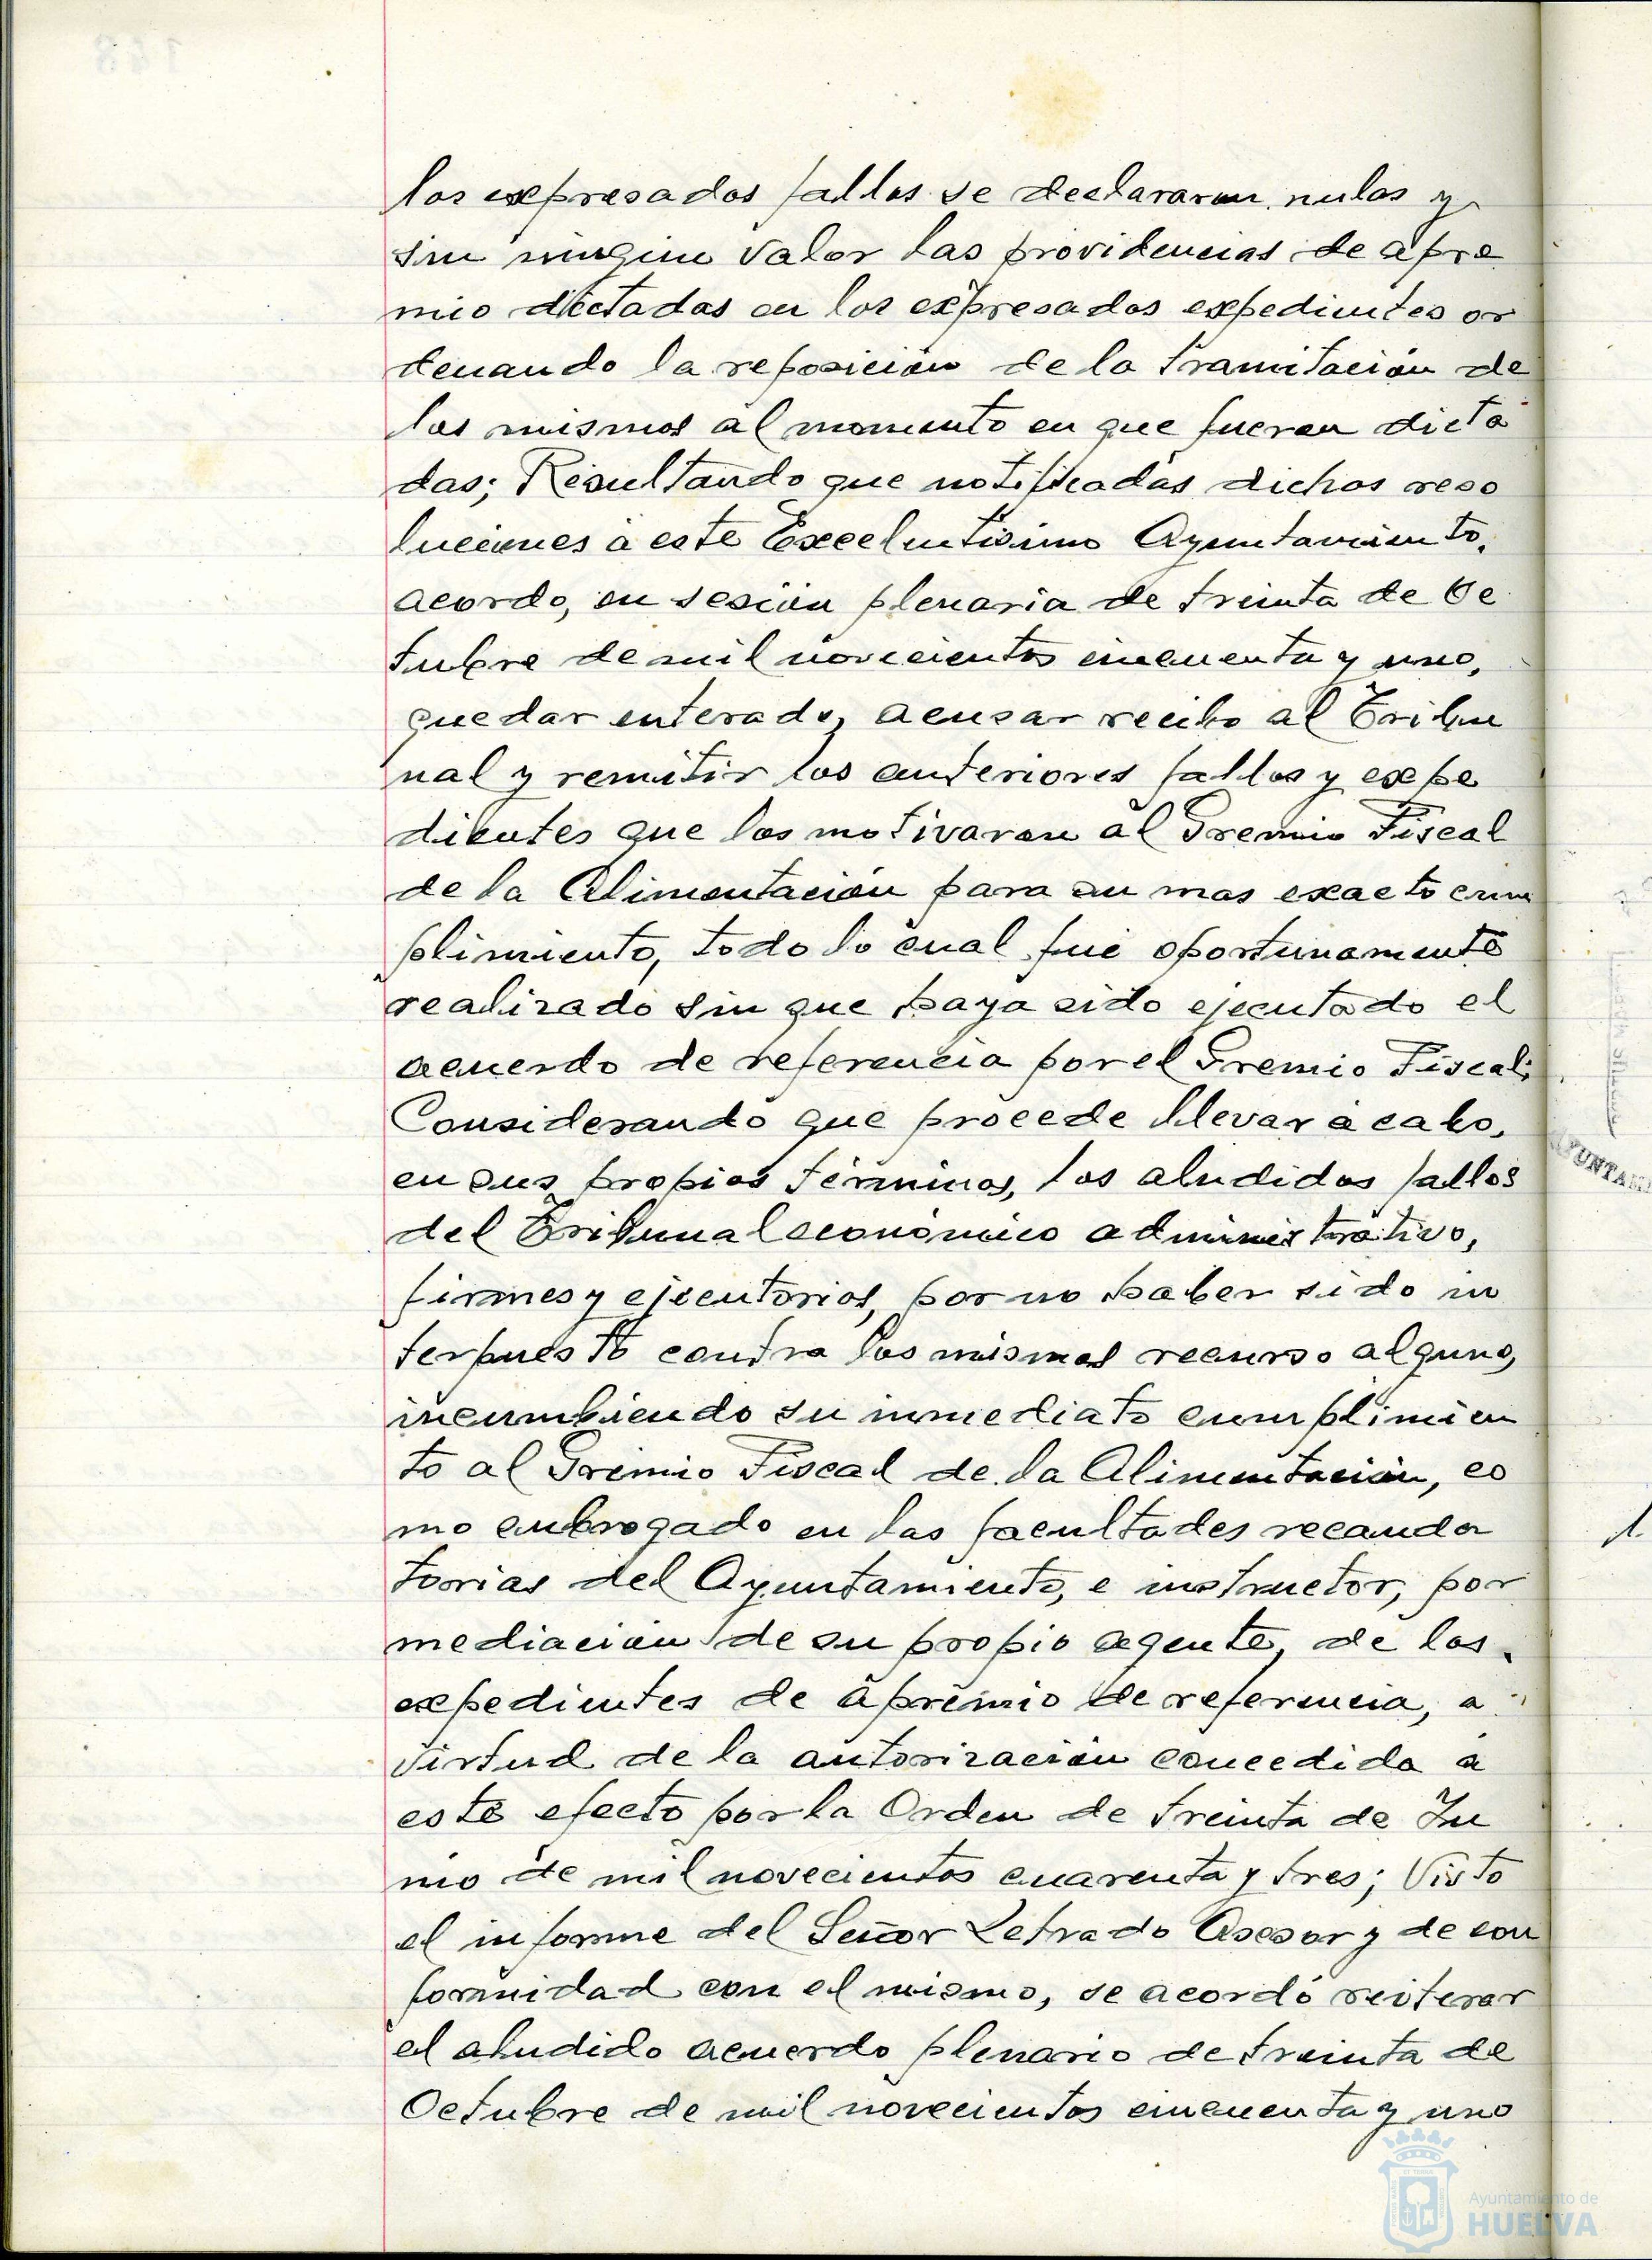 los expresados fallos se declararon nulas y
sin ningun valor las providencias de apre
mio dictadas en los expresados expedientes or
denando la reposición de la tramitación de
los mismos al momento en que fueron dicta
das; Resultando que notificadas dichas reso
luciones a este Excelentísimo Ayuntamiento,
acordo, en sesión plenaria de treinta de Oc
tubre de mil novecientos cincuenta y uno,
quedar enterado, acusar recibo al Tribu
nal y remitir los anteriores fallos y expe
dientes que los motivaron al Gremio Fiscal
de la Alimentación para su mas exacto cum
plimiento, todo lo cual fué oportunamente
realizado sin que haya sido ejecutado el
acuerdo de referencia por el Gremio Fiscal;
Considerando que procede llevar a cabo,
en sus propios términos, los aludidos fallos
del Tribunal económico administrativo,
firmes y ejecutorios, por no haber sido in
terpuesto contra los mismos recurso alguno,
incumbiendo su inmediato cumplimien
to al Gremio Fiscal de la Alimentación, co
mo subrogado en las facultades recauda
torias del Ayuntamiento, e instructor, por
mediación de su propio agente, de los
expedientes de apremio de referencia, a
virtud de la autorización concedida a
este efecto por la Orden de treinta de Ju
nio de mil novecientos cuarenta y tres; Visto
el informe del Señor Letrado Asesor y de con
formidad con el mismo, se acordó reiterar
el aludido acuerdo plenario de treinta de
Octubre de mil novecientos cincuenta y uno
Ayuntamiento de
HUELVA